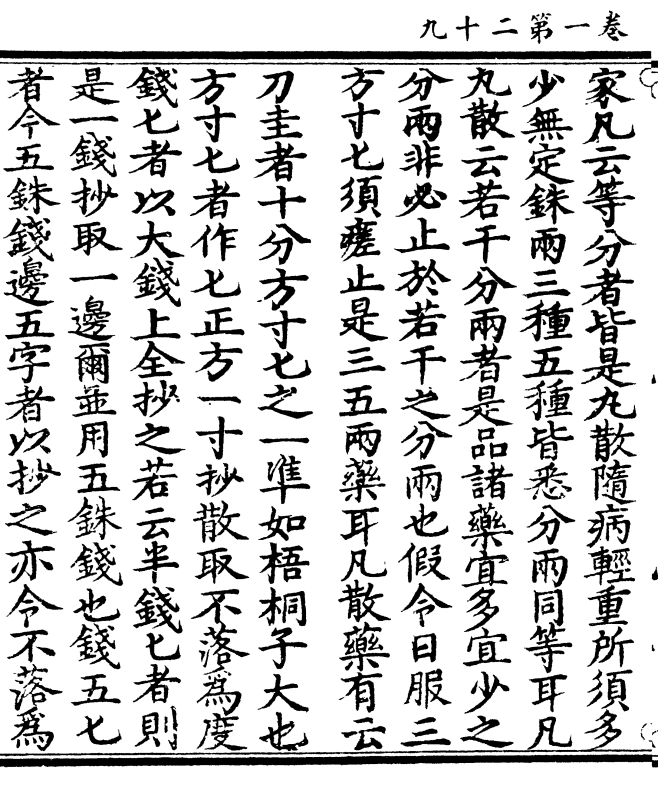 卷一第二十九
家凡云等分者皆是丸散隨病輕重所須多
少無定銖兩三種五種皆悉分兩同等耳凡
丸散云若干分兩者是品諸藥宜多宜少之
分兩非必止於若干之分兩也假令日服三
方寸匕須瘥止是三五兩藥耳凡散藥有云
刀圭者十分方寸匕之一準如梧桐子大也
方寸匕者作匕正方一寸抄散取不落為度
錢匕者以大錢上全抄之若云半錢匕者則
是一錢抄取一邊爾並用五銖錢也錢五匕
者今五銖錢邊五字者以抄之亦令不落為